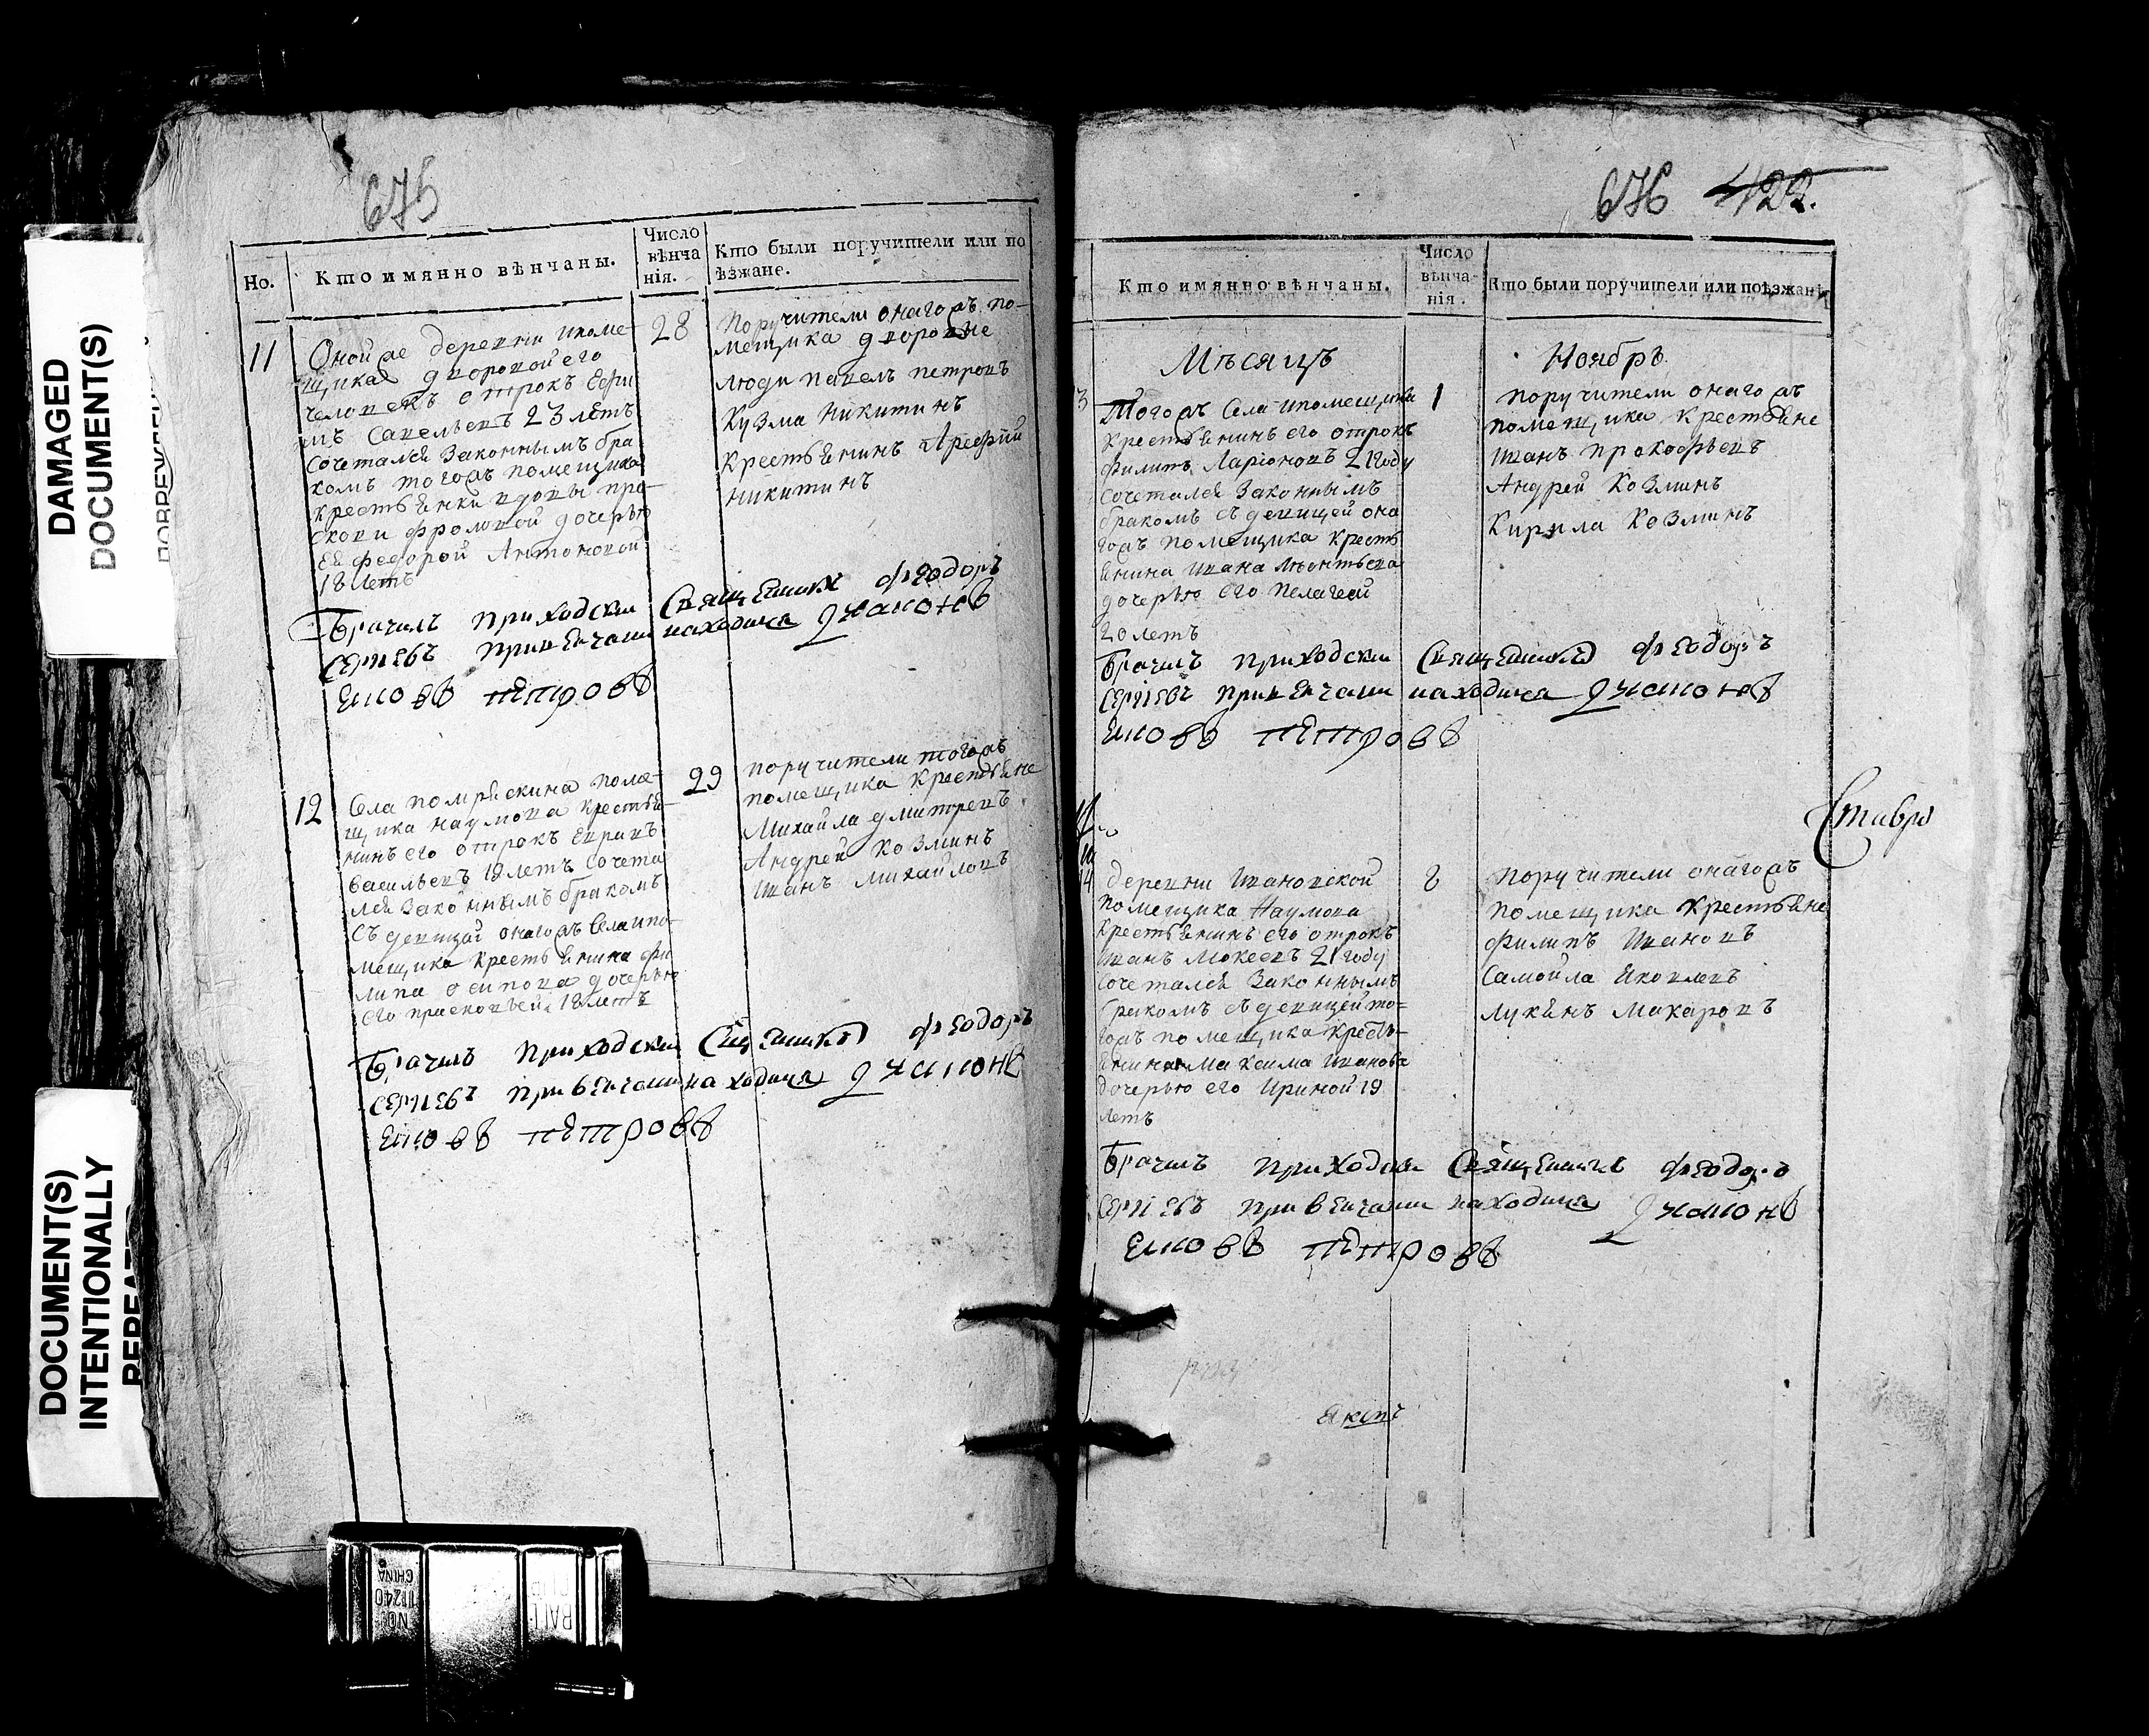 DAMAGED
DOCUMENT(S)
DOCUMENT(S)
INTENTIONALLY
675
Но.
Кто имянно вѣнчаны.
Число
вѣнча
нія.
Кто были поручители или по
ѣзжане.
11
Оной же деревни ипоме-
щика дворовой его
человекъ отрокъ Ефи
мъ Савельевъ 23 летъ
сочетался законнымъ бра
комъ тогожъ помещика
крестьянки вдовы пра-
сковьи фроловой дочерью
Ея федорой Антоновой
18 летъ
28
Поручители оногожъ по-
мещика дворовые
люди павелъ петровъ
Кузма Никитинъ
крестьянинъ Арефий
никитинъ
Брачилъ приходски Священникъ феодоръ
Сергиевъ при венчани находился
петровъ
12
Села
щика наумова крестья-
нинъ его отрокъ
васильевъ 19 летъ Сочета
лся законнымъ бракомъ
съ девицей оногожъ Села ипо-
мещика крестьянина фи
липа осипова дочерью
его прасковьей 18 летъ
29
поручители тогожъ
помещика крестьяне
Михайла дмитревъ
Андрей Козминъ
Иванъ Михайловъ
Брачилъ приходски феодоръ
Сергиевъ при венчани находился
петровъ
676 422.
Кто имянно вѣнчаны.
Число
вѣнча-
нія.
Кто были поручители или поѣзжанѣ
Мѣсяцъ
Ноябръ
3
Тогожъ Села ипомещика
крестьянинъ его отрокъ
филипъ Ларионовъ 21 году
сочетался законнымъ
бракомъ съ девицей она
гожъ помещика кресть
янина Ивана Леонтьева
дочерью его пелагеей
20 летъ
1
поручители оногожъ
помещика крестьяне
Иванъ прокофьевъ
Андрей Козминъ
Кирила Козминъ
Брачилъ приходски Священникъ феодоръ
Сергиевъ при венчани находился
петровъ
14
деревни Ивановской
помещика Наумова
крестьянинъ его отрокъ
Иванъ Мокеевъ 21 году
сочетался законнымъ
бракомъ съ девицей то-
гожъ помещика кресть-
янина Максима Иванова
дочерью его Ириной 19
летъ
8
Поручители оногожъ
помещика крестьяне
филипъ Ивановъ
Самойла Яковлевъ
Лукьянъ Макаровъ
Брачилъ приходски Священникъ феодоръ
Сергиевъ при венчани находился
петровъ